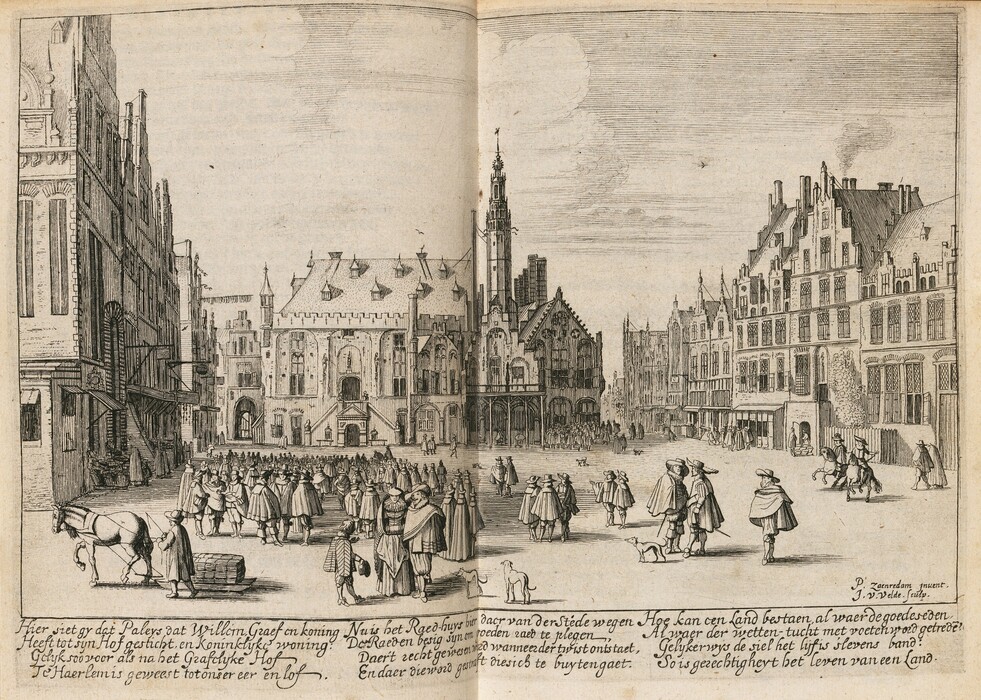 P. Zaenredam invent.
J. V. Velde. sculp.
Hier siet gy dat Paleys dat Willem Graef en koning
Heeft tot syn Hof gesticht, en Koninklyke woning:
Gelyk soo voor als na het Graeflyke Hof
Te Haerlem is geweest tot onser eer en lof.
Nu is het Raed-huys hier daer van der Stede wegen
De Raeden besig syn om goeden raed te plegen
Daert recht gewesen werd wanneer der twist ontstaet,
En daer die word gestraft die sich te buyten gaet.
Hoe kan een Land bestaen, al waer de goede seden
Al waer der wetten-tucht met voeten word getreden?
Gelykerwys de siel het lyf is slevens band
So is gerechtigheyt het leven van een Land.